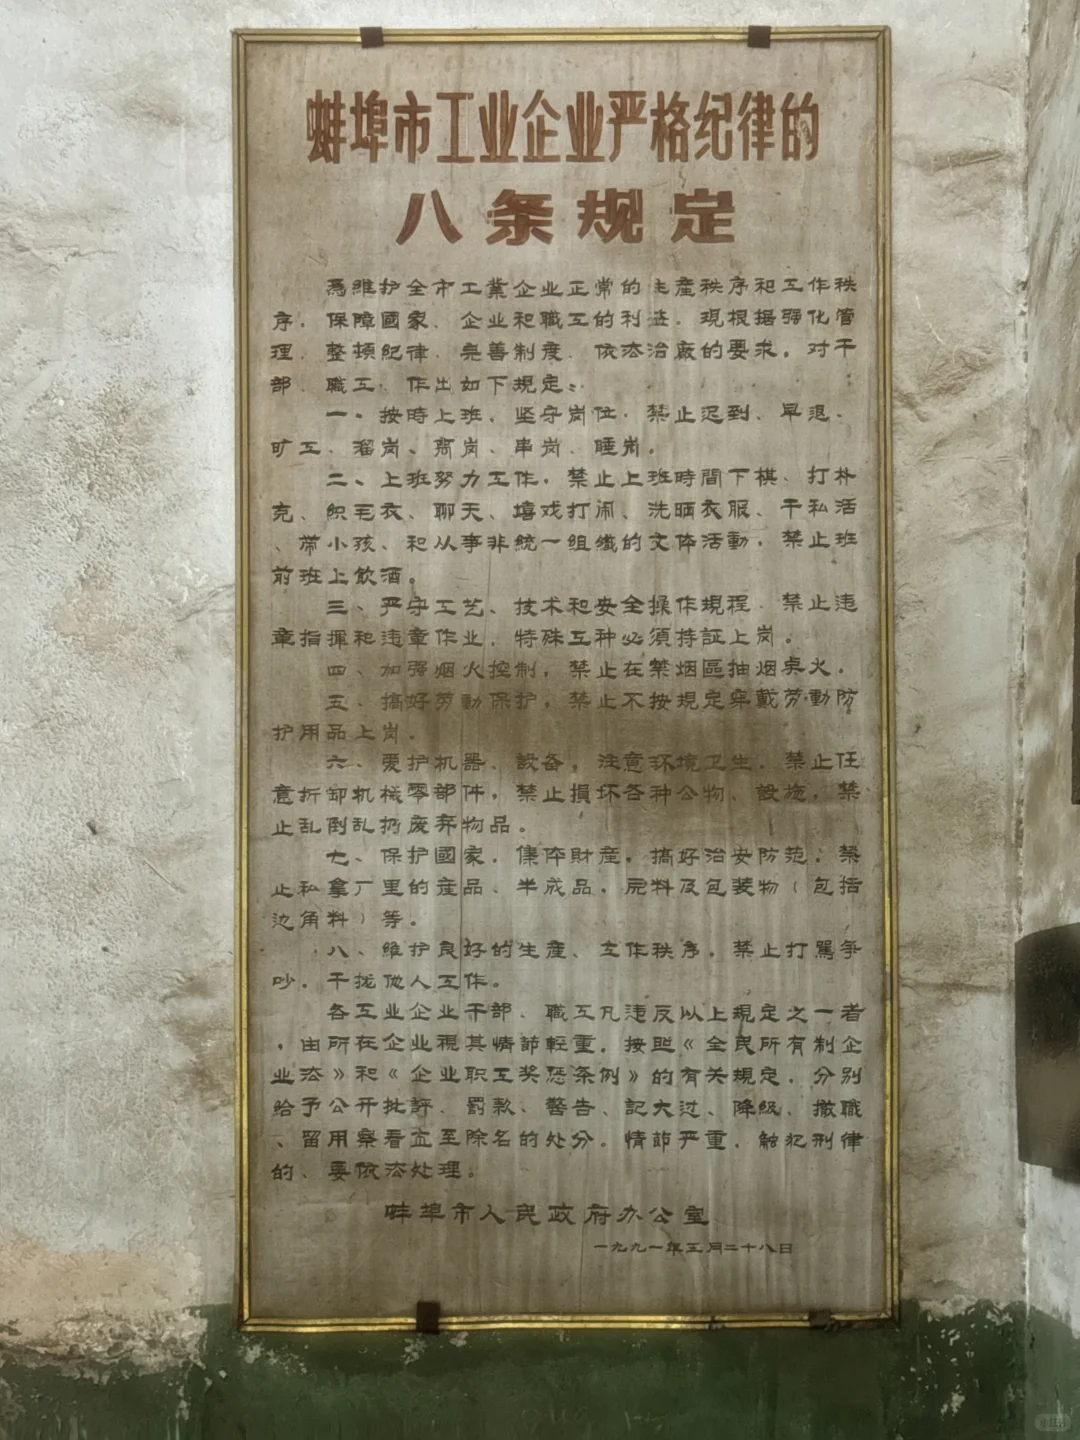 蚌埠市工业企业严格纪律的
八条规定
為維护全市工業企业正常的生産秩序和工作秩
序，保障國家、企业和職工的利益，現根据强化管
理、整頓紀律、完善制度、依法治廠的要求，对干
部、職工、作出如下規定：
一、按時上班、坚守岗位，禁止迟到、早退、
旷工、溜岗、离岗、串岗、睡岗。
二、上班努力工作，禁止上班時間下棋、打朴
克、织毛衣、聊天、嬉戏打闹、洗晒衣服、干私活
、带小孩、和从事非統一组織的文体活動，禁止班
前班上飲酒。
三、严守工艺、技术和安全操作規程，禁止违
章指揮和违章作业，特殊工种必須持証上岗。
四、加强烟火控制，禁止在禁烟區抽烟点火。
五、搞好劳動保护，禁止不按規定穿戴劳動防
护用品上岗。
六、爱护机器、設备，注意环境卫生，禁止任
意折卸机械零部件，禁止損坏各种公物、設施，禁
止乱倒乱扔废弃物品。
七、保护國家，集体財産，搞好治安防范，禁
止私拿厂里的産品、半成品，原料及包装物（包括
边角料）等。
八、維护良好的生産、工作秩序，禁止打罵争
吵，干扰他人工作。
各工业企业干部、職工凡违反以上規定之一者
，由所在企业視其情節輕重，按照《全民所有制企
业法》和《企业职工奖惩条例》的有关規定，分别
給予公开批評、罰款、警告、記大过、降級、撤職
、留用察看直至除名的处分。情節严重，触犯刑律
的、要依法处理。
蚌埠市人民政府办公室
一九九一年五月二十八日